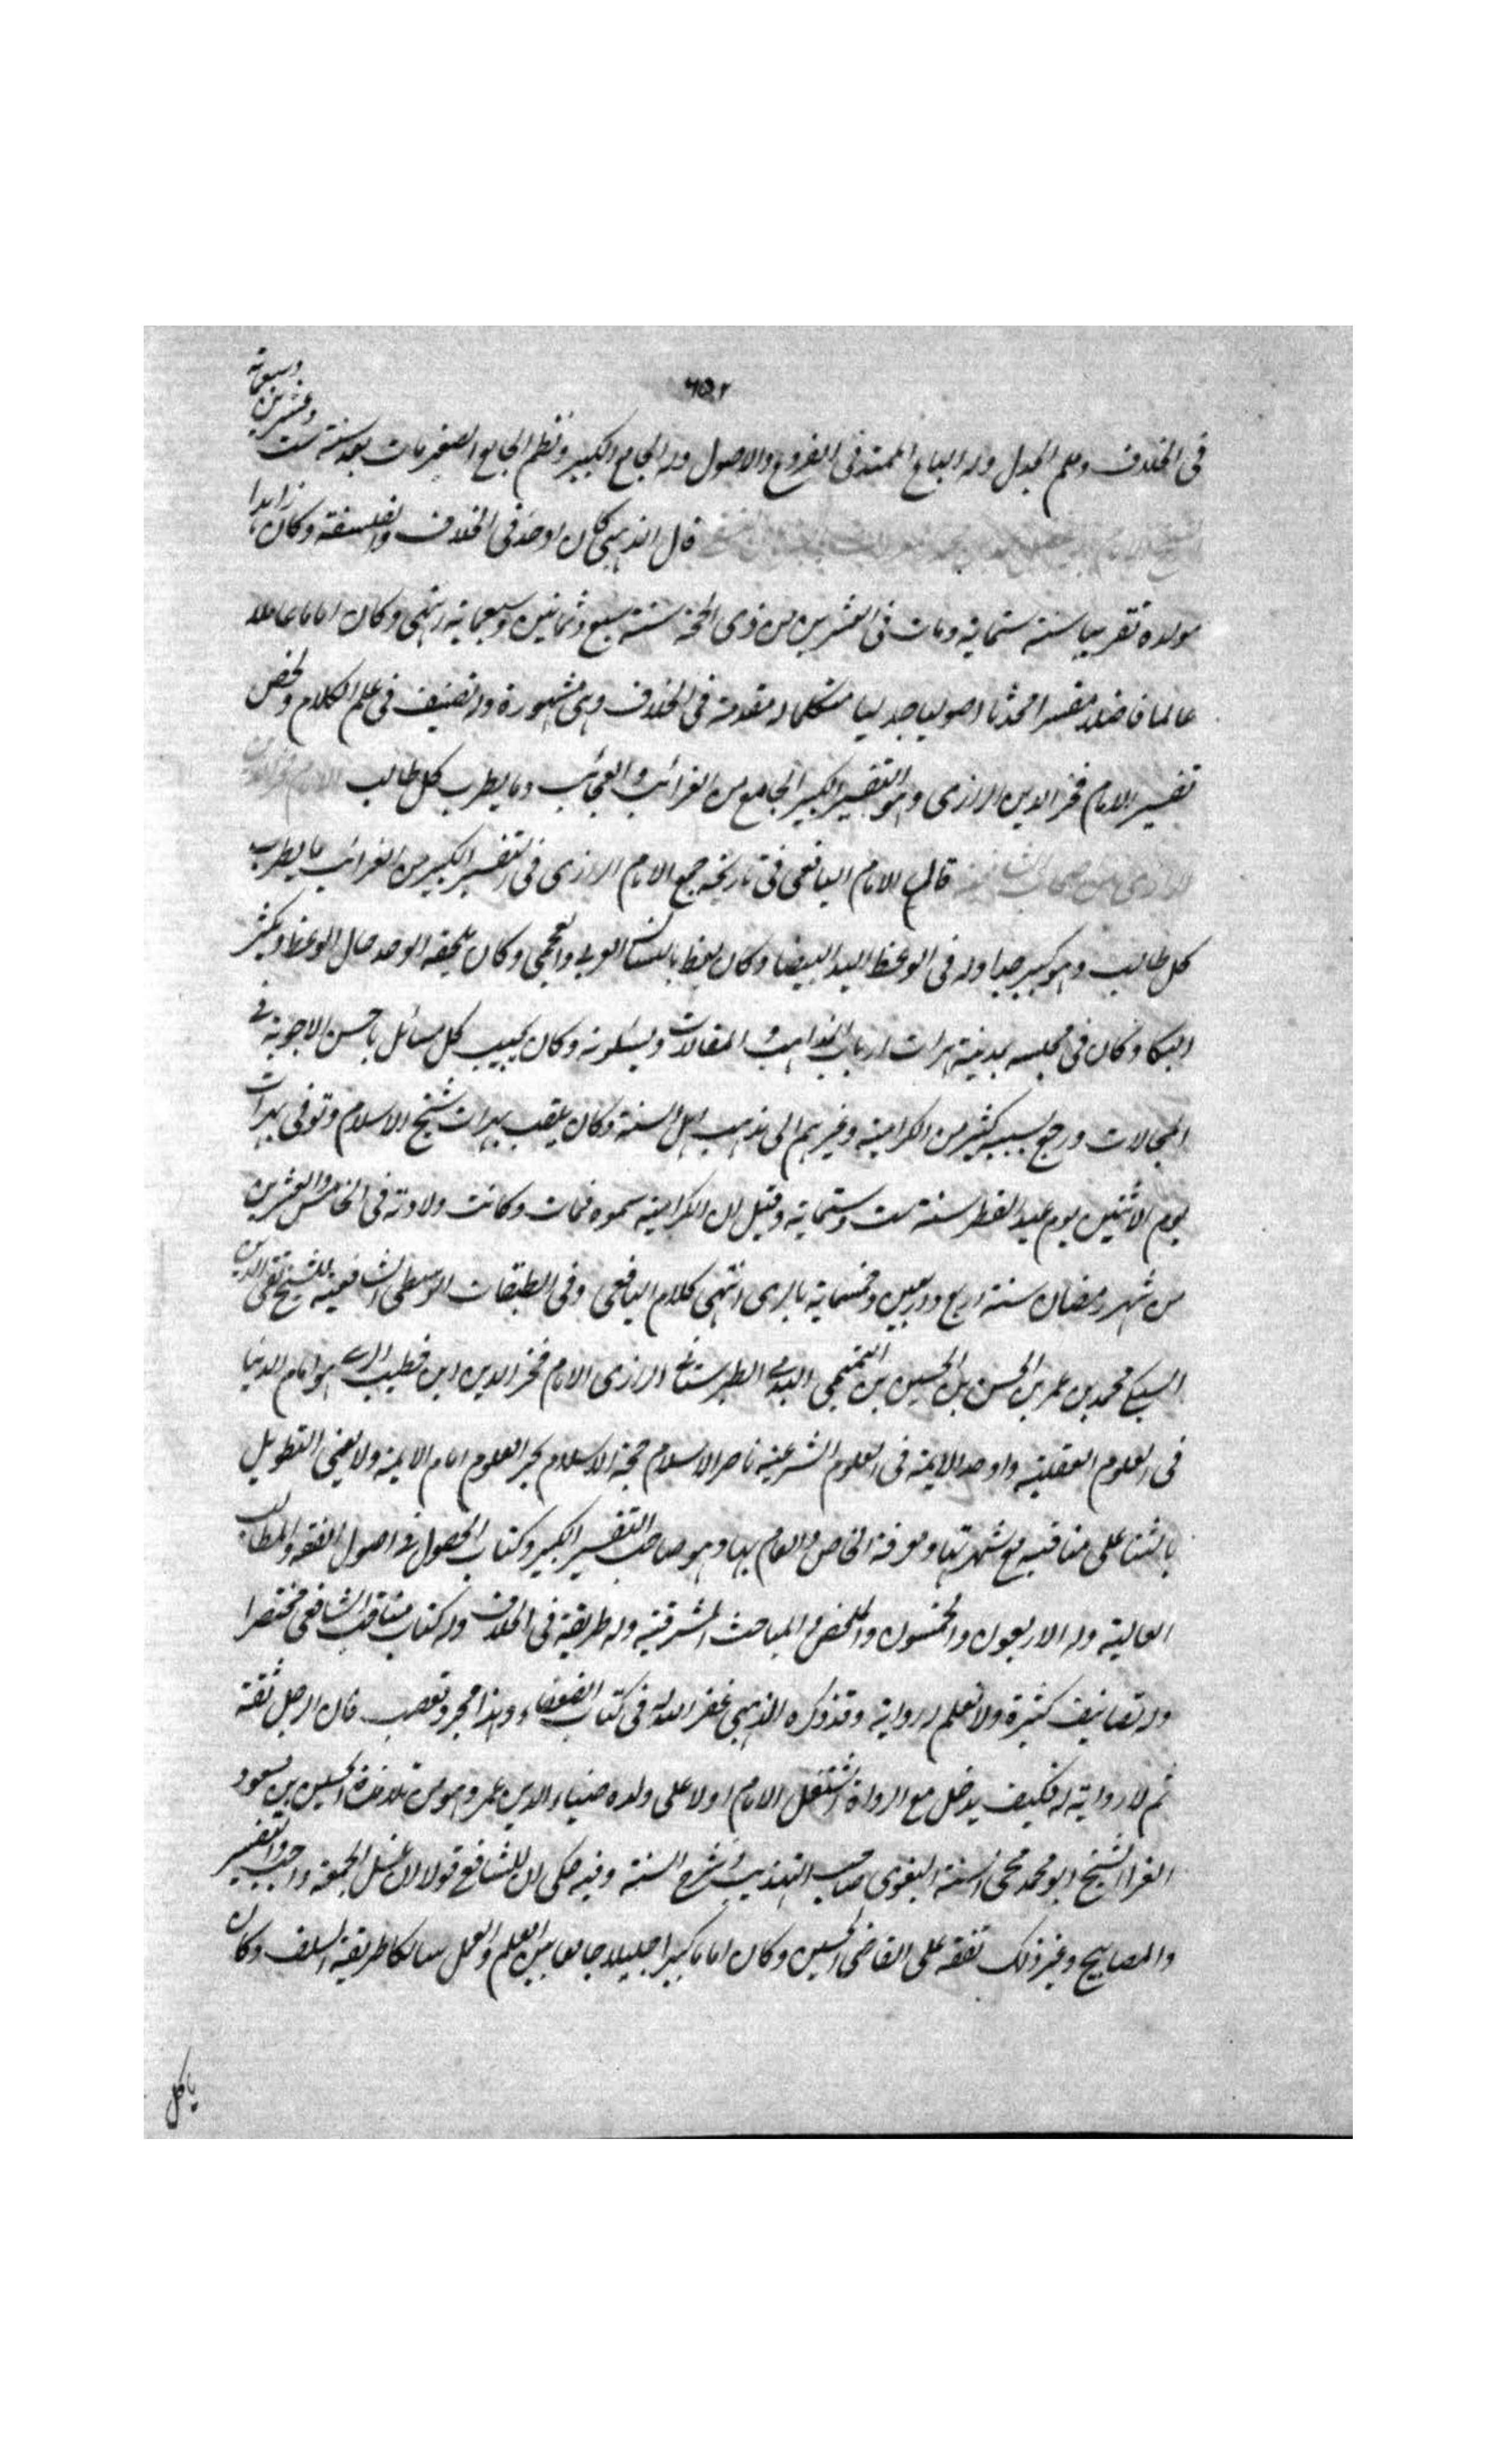 ٦٥٢
فى الخلاف وعلم الجدل وله الباع الممتد فى الفروع والاصول وله الجامع الكبير ونظم الجامع الصغير مات بعد سنة ست وعشرين وسبعمائة
قال الذهبى كان اوحد فى الخلاف والفلسفة وكان زاهدا
مولده تقريبا سنة ستماية ومات فى العشرين من ذى الحجة سنة سبع وثمانين وسبعماية انتهى وكان اماما عاملا
عالما فاضلا مفسرا محدثا اصوليا جدليا متكلما له مقدمة فى الخلاف وهى مشهورة وله تصنيف فى علم الكلام ولخص
تفسير الامام فخر الدين الرازى وهو التفسير الكبير الجامع من الغرائب والعجائب وما يطرب كل طالب الامام فخر الدين
الرازى من اصحاب الشافعية قال الامام اليافعى فى تاريخه جمع الامام الرازى فى التفسير الكبير من الغرائب ما يطرب
كل طالب وهو كبير جدا وله فى الوعظ اليد البيضا وكان يعظ باللسان العربى والعجمى وكان يلحقه الوجد حال الوعظ ويكثر
البكا وكان فى مجلسه بمدينة هرات ارباب المذاهب والمقالات ويسئلونه وكان يجيب كل مسائل باحسن الاجوبة فى
المجالات ورجع بسببه كثير من الكرامية وغيرهم الى مذهب اهل السنة وكان يلقب بهرات شيخ الاسلام وتوفى بهرات
يوم الاثنين يوم عيد الفطر سنة ست وستماية وقيل ان الكرامية سموه فمات وكانت ولادته فى الخامس والعشرين
من شهر رمضان سنة اربع واربعين وخمسماية بالرى انتهى كلام اليافعى وفى الطبقات الوسطى الشافعية للشيخ تقى الدين
السبكى محمد بن عمر بن الحسن بن الحسين بن التميمى البكرى الطبرستانى الرازى الامام فخر الدين ابن خطيب الرى هو امام الدنيا
فى العلوم العقلية واوحد الايمة فى العلوم الشرعية ناصر الاسلام حجة الاسلام بحر العلوم امام الايمة ولا يعنى التطويل
بالثنا على مناقبه مع شهرتها ومعرفة الخاص والعام بها وهو صاحب التفسير الكبير وكتاب المحصول فى اصول الفقه والمطالب
العالية وله الاربعون والخمسون والملخص والمباحث المشرقية وله طريقة فى الخلاف وله كتاب مناقب الشافعى مختصرا
وله تصانيف كثيرة ولا نعلم له رواية وقد ذكره الذهبى غفر الله له فى كتاب الضعفاء وهذا مجرد تعصب فان الرجل ثقة
ثم لا رواية له فكيف يدخل مع الرواة اشتغل الامام اولا على ولده ضياء الدين عمر وهو من تلامذة الحسين بن مسعود
الفرا الشيخ ابو محمد محى السنة البغوى صاحب التهذيب وشرح السنة وفيه حكى ان للشافعى قولا ان غسل الجمعة واجب والتفسير
والمصابيح وغير ذلك تفقه على القاضى الحسين وكان اماما كبيرا جليلا جامعا بين العلم والعمل سالكا طريقة السلف وكان
ياكل